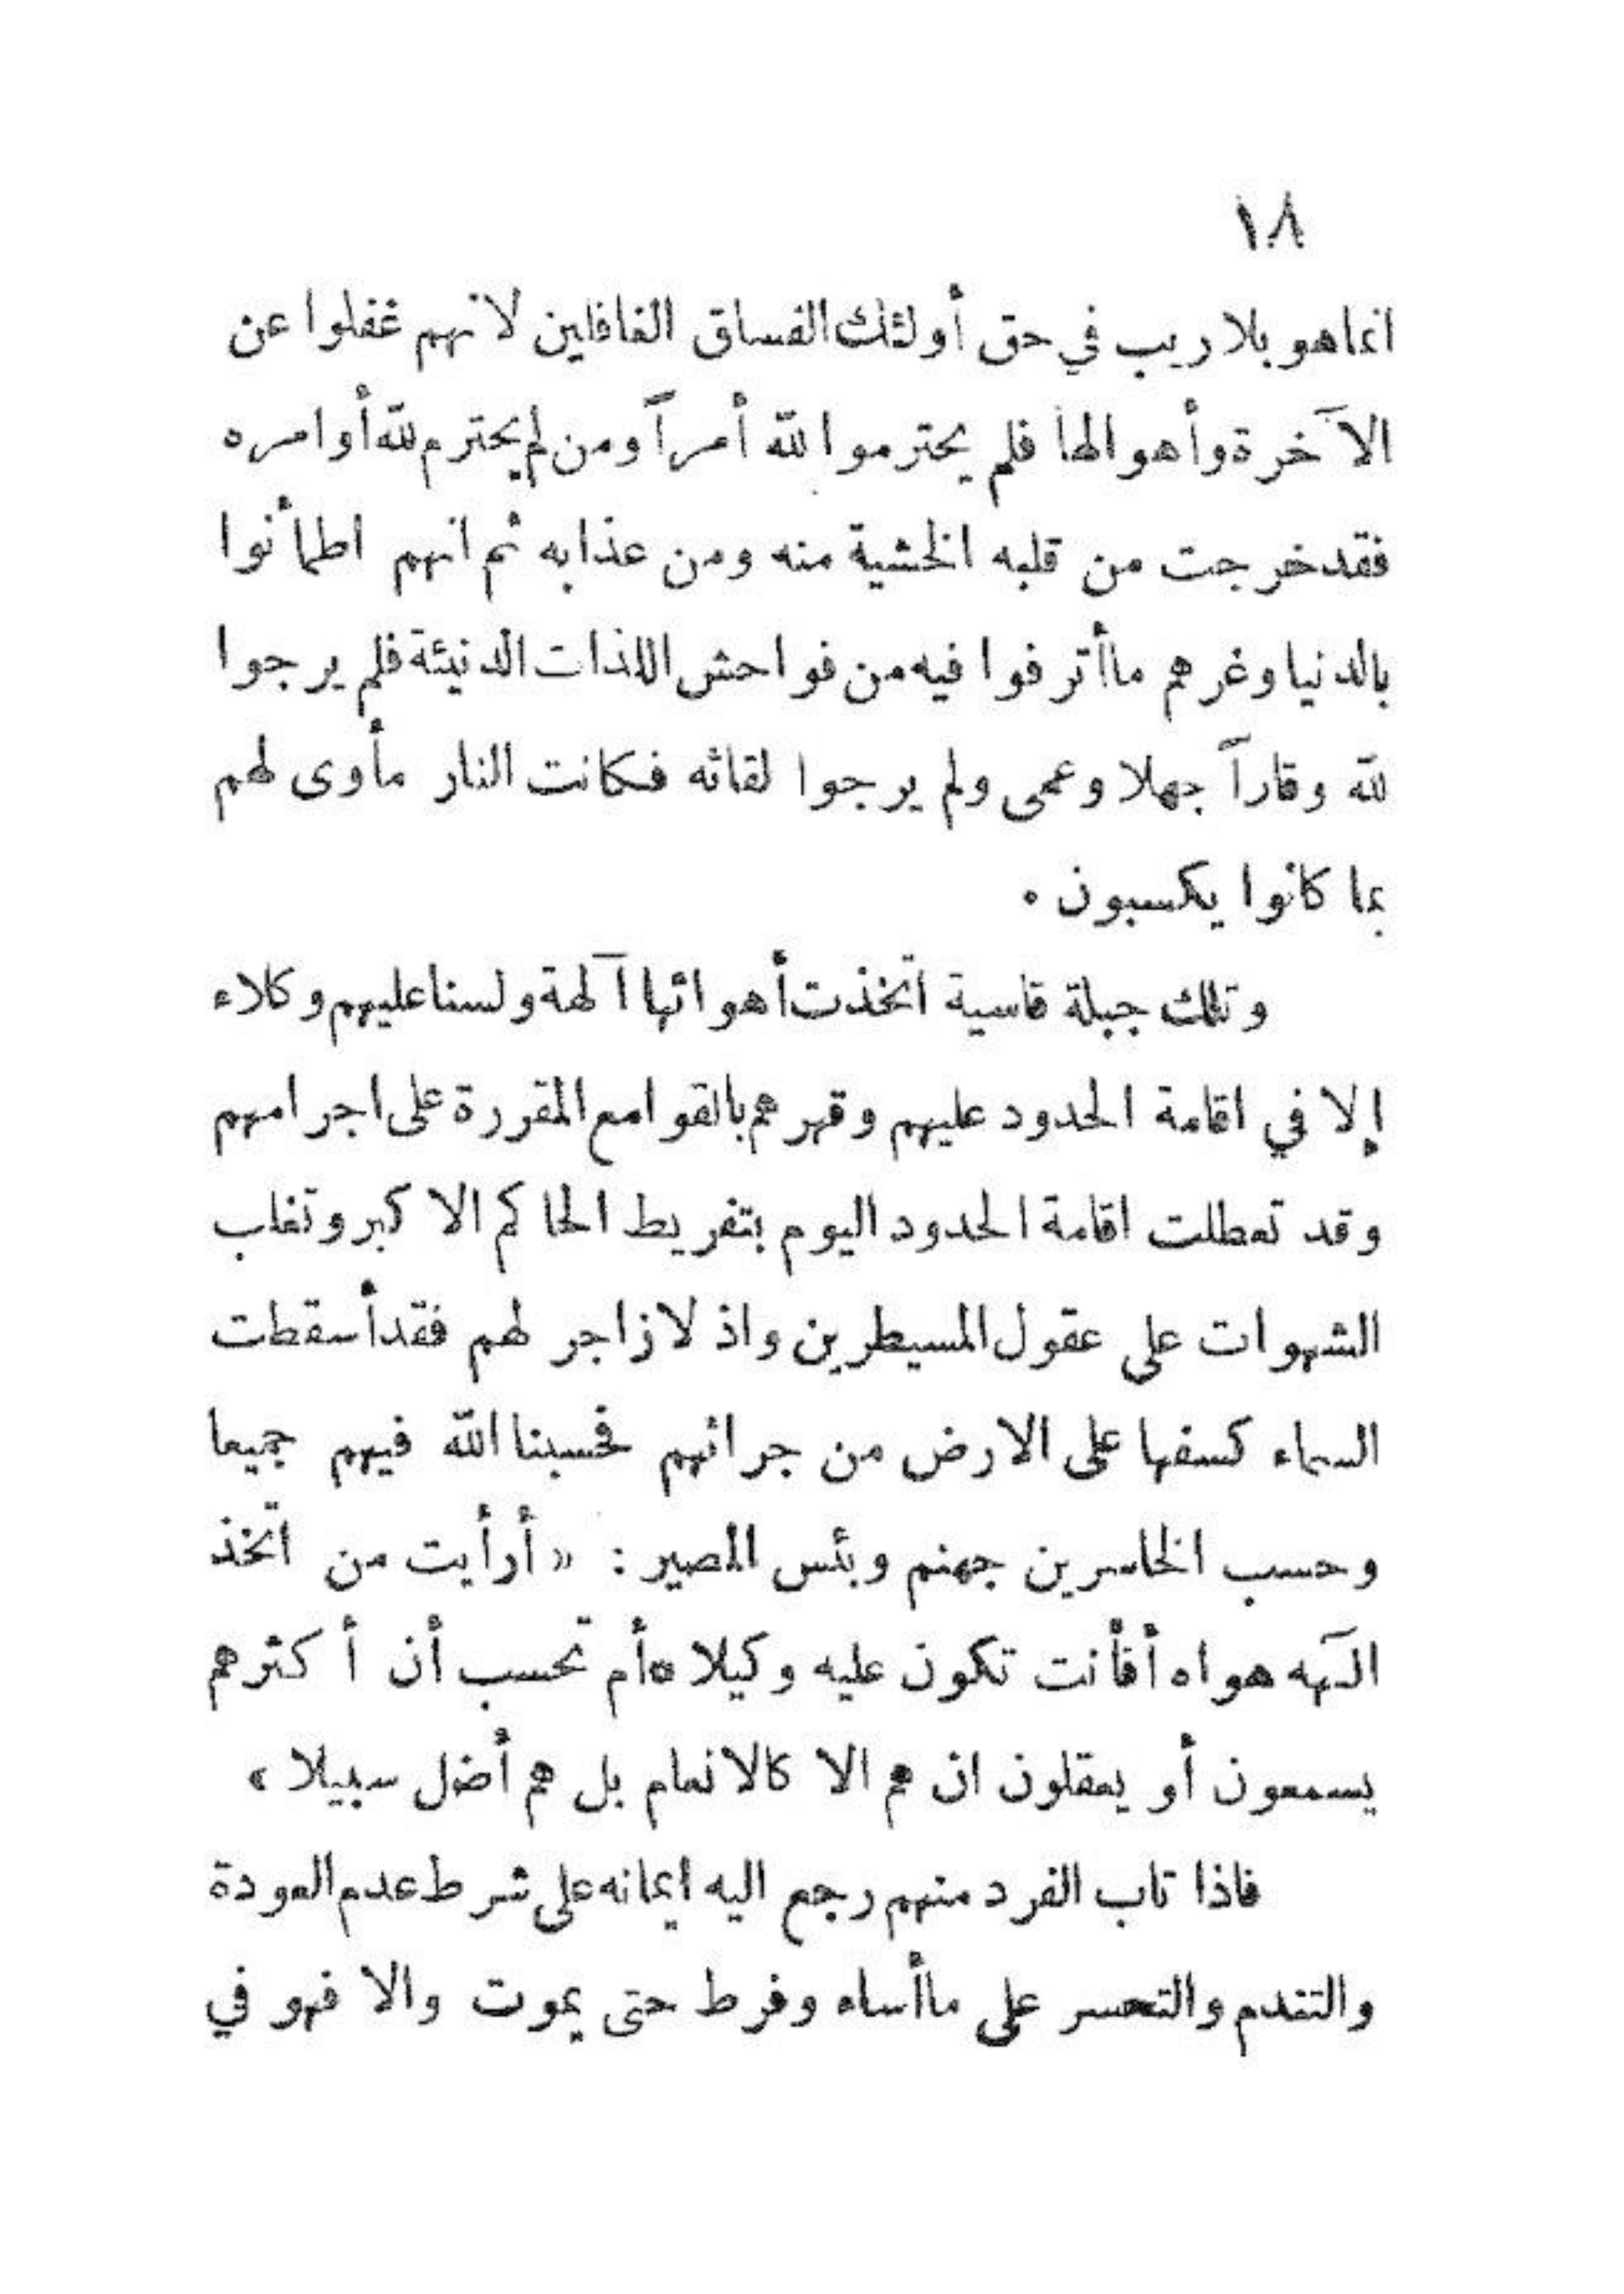 ١٨
انما هو بلا ريب في حق أولئك الفساق الغافلين لانهم غفلوا عن
الآخرة وأهوالها فلم يحترموا لله أمراً ومن لم يحترم لله أوامره
فقد خرجت من قلبه الخشية منه ومن عذابه ثم انهم اطمأنوا
بالدنيا وغرهم ماأترفوا فيه من فواحش اللذات الدنيئة فلم يرجوا
لله وقاراً جهلا وعمى ولم يرجوا لقائه فكانت النار مأوى لهم
بما كانوا يكسبون .
وتلك جبلة قاسية اتخذت أهوائها آلهة ولسنا عليهم وكلاء
إلا في اقامة الحدود عليهم وقهرهم بالقوامع المقررة على اجرامهم
وقد تعطلت اقامة الحدود اليوم بتفريط الحاكم الاكبر وتغلب
الشهوات على عقول المسيطرين واذ لازاجر لهم فقد أسقطت
السماء كسفها على الارض من جرائهم فحسبنا الله فيهم جميعا
وحسب الخاسرين جهنم وبئس المصير : « أرأيت من اتخذ
الٓهه هواه أفأنت تكون عليه وكيلا ه أم تحسب أن أكثرهم
يسمعون أو يعقلون ان هم الا كالانعام بل هم أضل سبيلا »
فاذا تاب الفرد منهم رجع اليه ايمانه على شرط عدم العودة
والتندم والتحسر على ماأساء وفرط حتى يموت والا فهو في